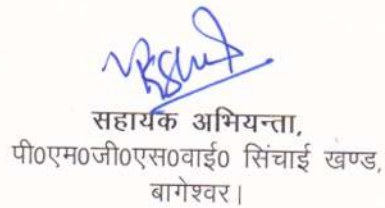 सहायक अभियन्ता,
पी0एम0जी0एस0वाई0 सिंचाई खण्ड,
बागेश्वर।